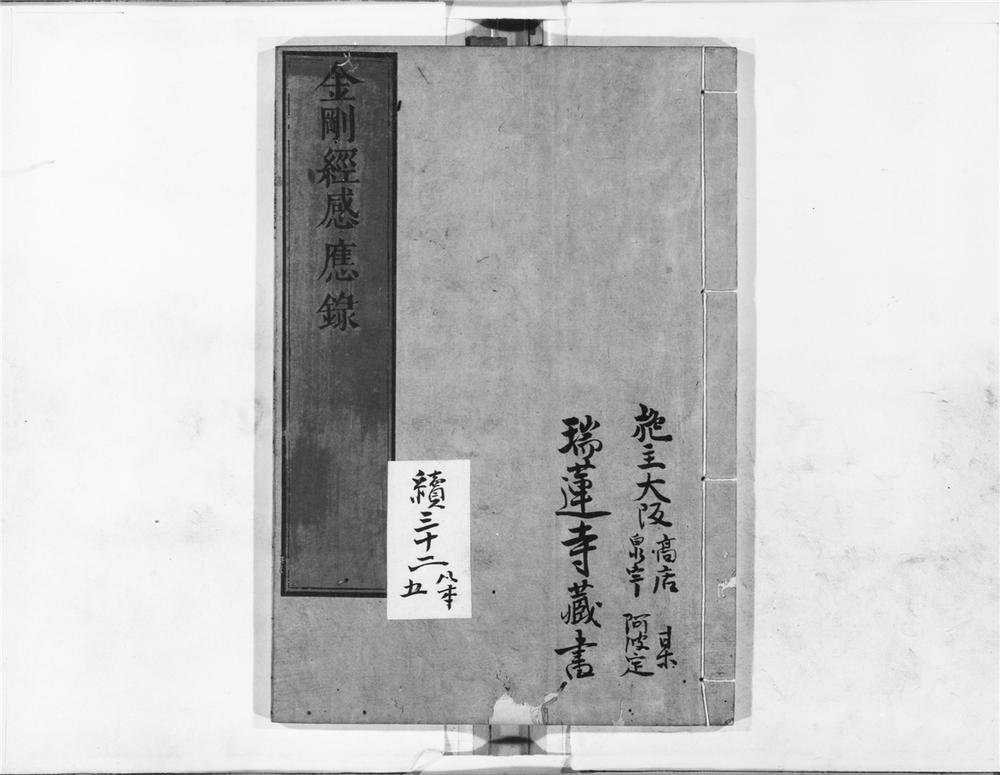 施主大阪
高店
泉宇 某
阿波定
瑞蓮寺藏書
續三十二
五
金剛經感應錄